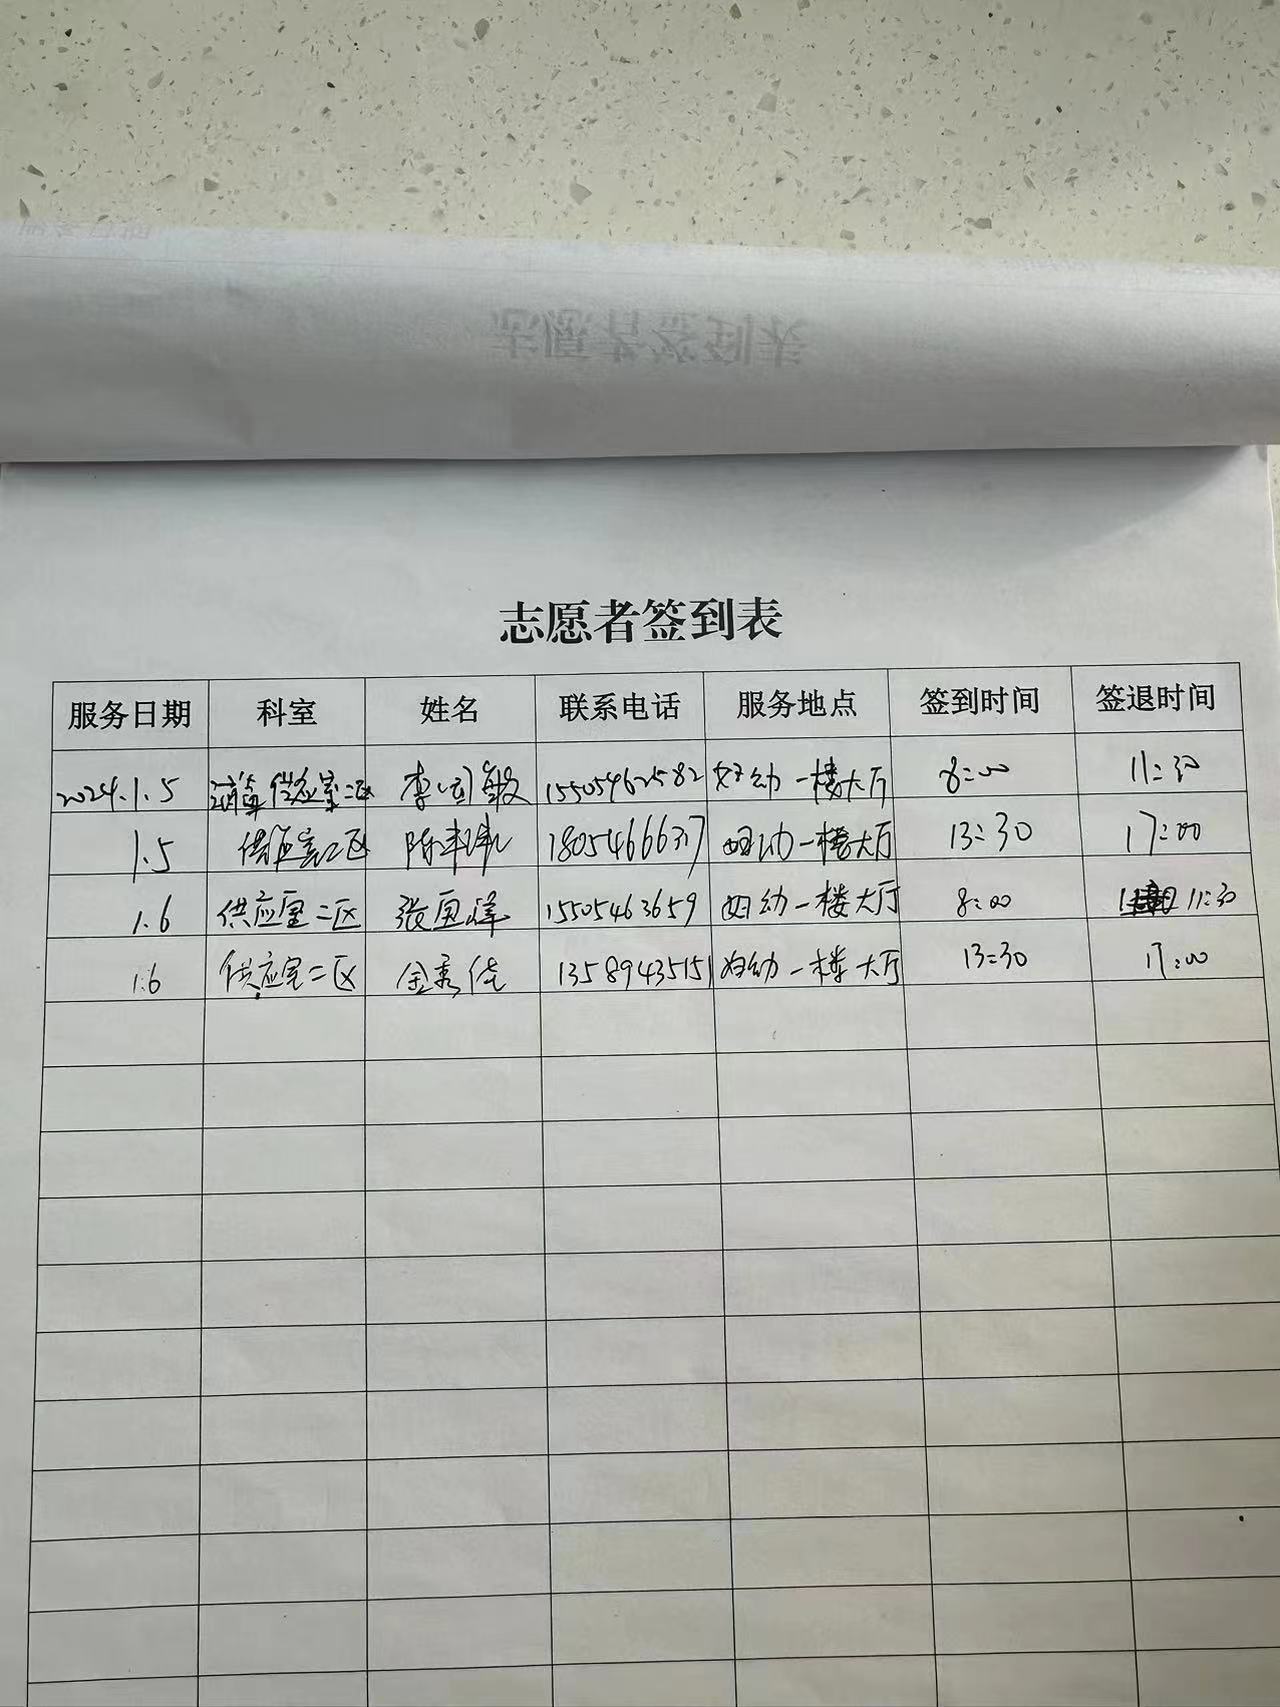 志愿者签到表
服务日期 科室 姓名 联系电话 服务地点 签到时间 签退时间
2024.1.5 供应室二区 李 敏 15505462582 妇幼一楼大厅 8:00 11:30
1.5 供应室二区 陈 18054666317 妇幼一楼大厅 13:30 17:00
1.6 供应室二区 张 峰 15505463659 妇幼一楼大厅 8:00 11:30
1.6 供应室二区 金秀佳 13589435151 妇幼一楼大厅 13:30 17:00